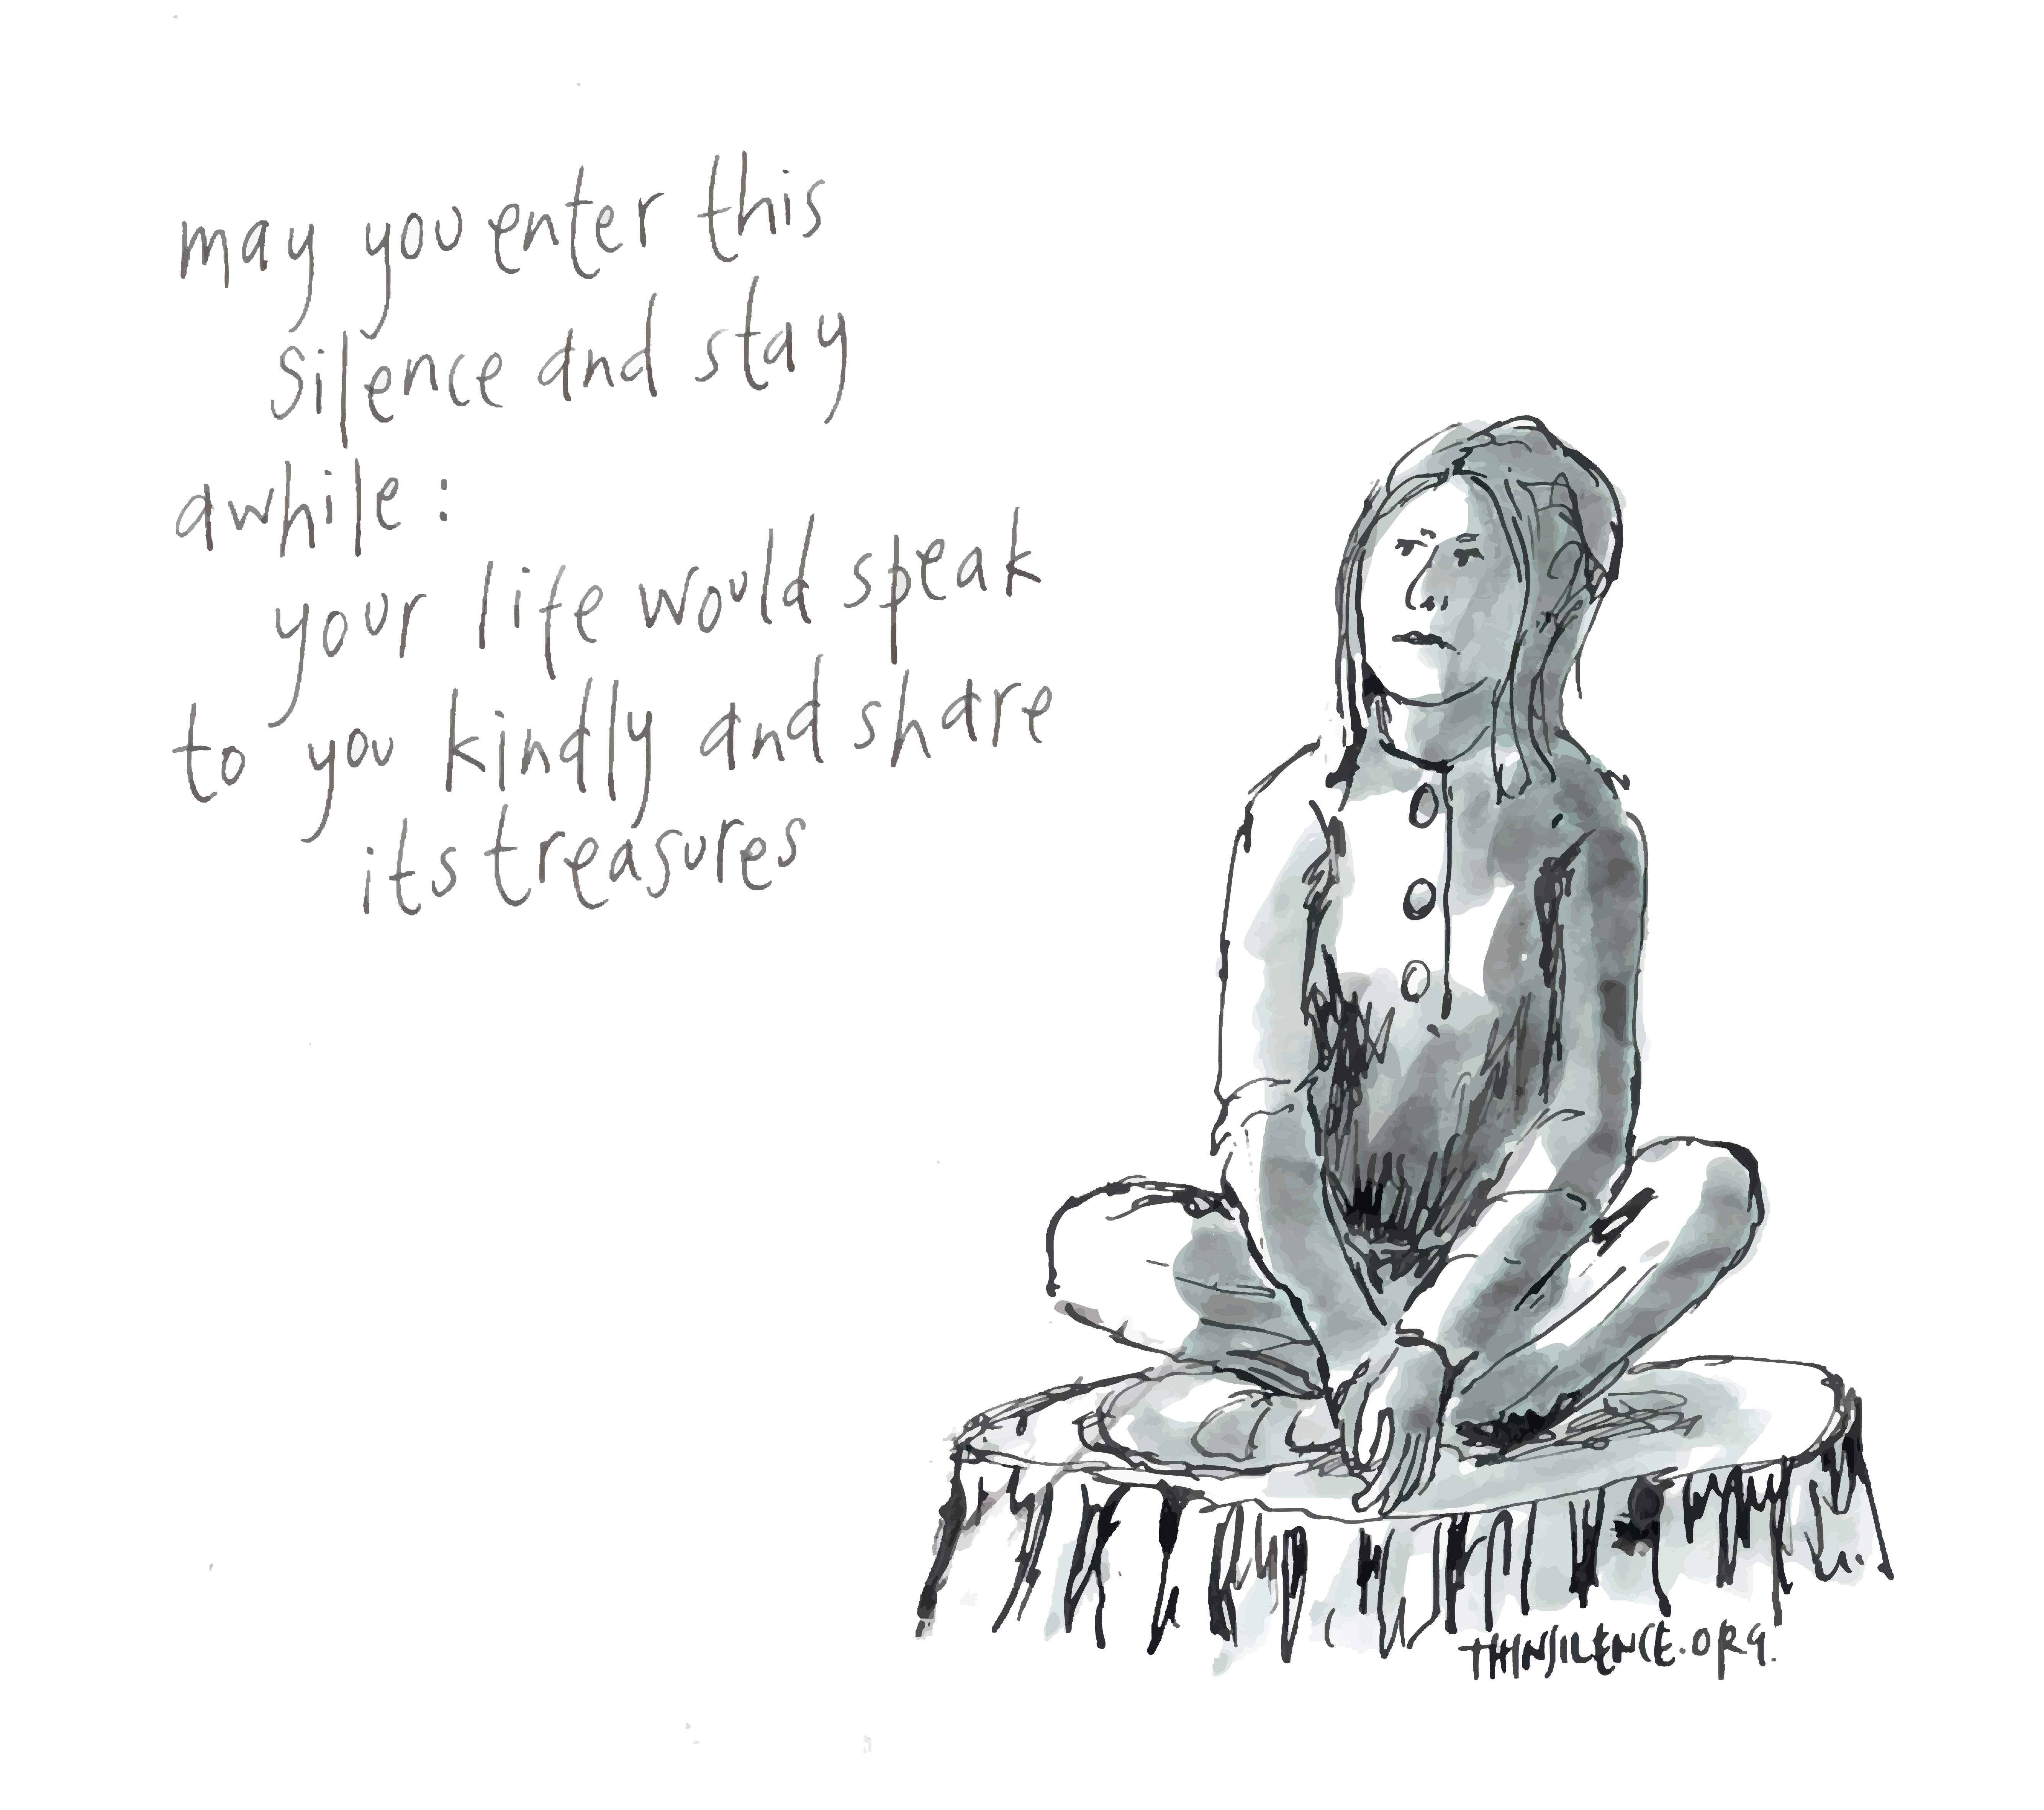 may you enter this
silence and stay
awhile:
your life would speak
to you kindly and share
its treasures
THINSILENCE.ORG.